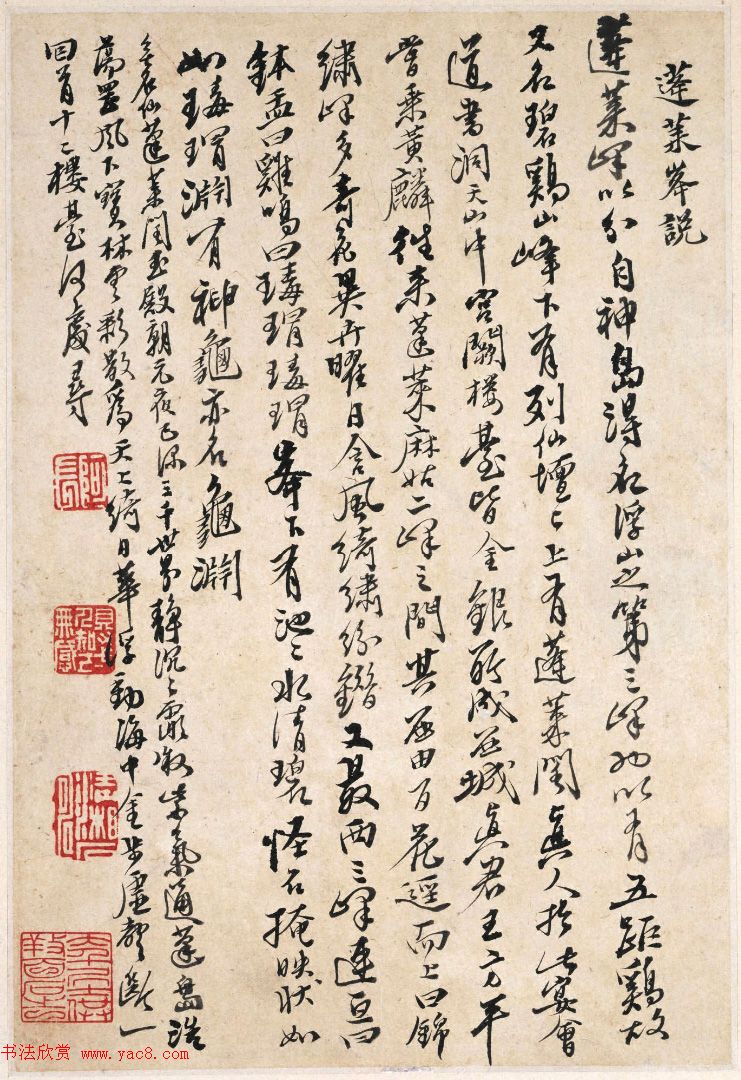 蓬莱峯説
蓬莱峰以分自神島得名浮山之第三峰也以有五距鷄故
又名碧鷄山峰下有列仙壇壇上有蓬莱閣真人於此宴會
道書洞天山中宮闕樓臺皆金銀所成茅城真君王方平
嘗乗黄麟往来蓬莱麻姑二峰之間其西由百花逕而上曰錦
繡峰多奇花異卉曜日含風綺繡紛錯又最西三峰連亘曰
鉢盂曰雞鳴曰瑇瑁瑇瑁峯下有池池水清碧怪石掩映状如
如瑇瑁淵有神龜亦名龜淵
仙蓬莱閣玉殿朝元夜正深三千世界静沉沉霞散紫氣通蓬島
萬里風下寶林雲影散為天上綺日華浮動海中金步虚聲斷一
回首十二樓臺何處尋
书法欣赏 www.yac8.com